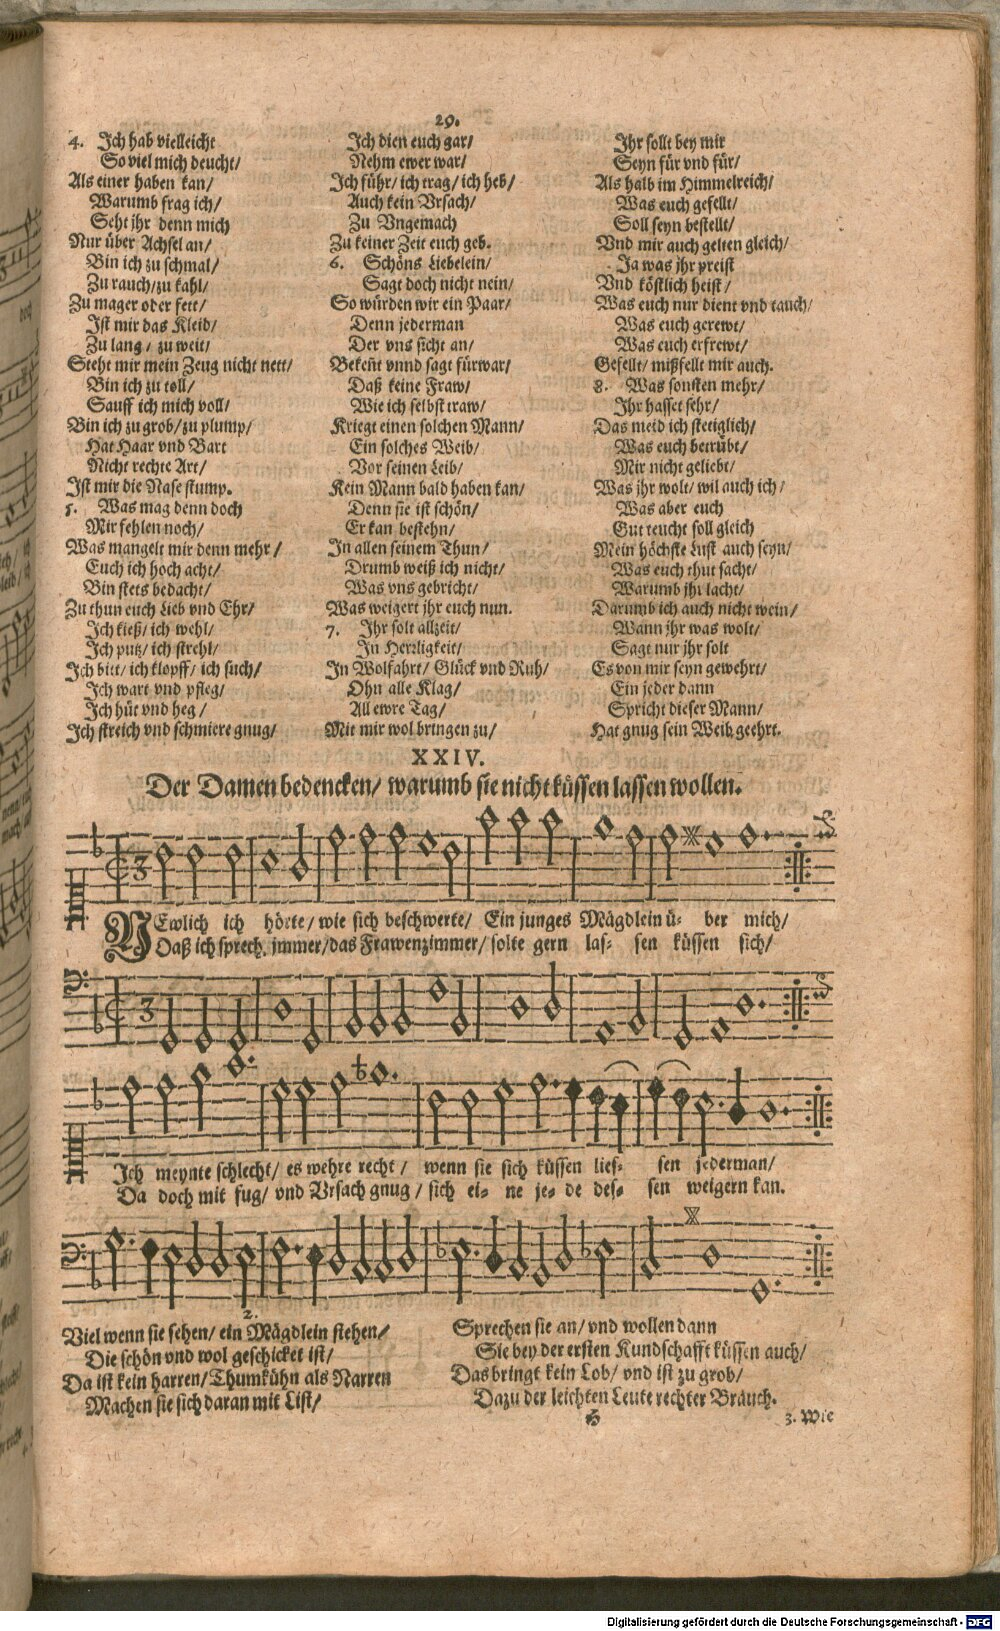 29.
4. Ich hab vielleicht
So viel mich deucht/
Als einer haben kan/
Warumb frag ich/
Seht jhr denn mich
Nur über Achsel an/
Bin ich zu schmal/
Zu rauch/zu kahl/
Zu mager oder fett/
Ist mir das Kleid/
Zu lang/ zu weit/
Steht mir mein Zeug nicht nett/
Bin ich zu toll/
Sauff ich mich voll/
Bin ich zu grob/zu plump/
Hat Haar vnd Bart
Nicht rechte Art/
Ist mir die Nase stump.
5. Was mag denn doch
Mir fehlen noch/
Was mangelt mir denn mehr/
Euch ich hoch acht/
Bin stets bedacht/
Zu thun euch Lieb vnd Ehr/
Ich kieß/ ich wehl/
Ich putz/ ich strehl/
Ich bitt/ ich klopff/ ich such/
Ich wart vnd pfleg/
Ich hüt vnd heg/
Ich streich vnd schmiere gnug/
Ich dien euch gar/
Nehm ewer war/
Ich führ/ ich trag/ ich heb/
Auch kein Vrsach/
Zu Vngemach
Zu keiner Zeit euch geb.
6. Schöns Liebelein/
Sagt doch nicht nein/
So würden wir ein Paar/
Denn jederman
Der vns sicht an/
Bekeñt vnnd sagt fürwar/
Daß keine Fraw/
Wie ich selbst traw/
Kriegt einen solchen Mann/
Ein solches Weib/
Vor seinen Leib/
Kein Mann bald haben kan/
Denn sie ist schön/
Er kan bestehn/
In allen seinem Thun/
Drumb weiß ich nicht/
Was vns gebricht/
Was weigert jhr euch nun.
7. Ihr solt allzeit/
In Herrligkeit/
In Wolfahrt/ Glück vnd Ruh/
Ohn alle Klag/
All ewre Tag/
Mit mir wol bringen zu/
Ihr sollt bey mir
Seyn für vnd für/
Als halb im Himmelreich/
Was euch gefellt/
Soll seyn bestellt/
Vnd mir auch gelten gleich/
Ja was jhr preist
Vnd köstlich heist/
Was euch nur dient vnd tauch/
Was euch gerewt/
Was euch erfrewt/
Gefellt/ mißfellt mir auch.
8. Was sonsten mehr/
Ihr hasset sehr/
Das meid ich stetiglich/
Was euch betrübt/
Mir nicht geliebt/
Was jhr wolt/ wil auch ich/
Was aber euch
Gut teucht soll gleich
Mein höchste Lust auch seyn/
Was euch thut sacht/
Warumb jhr lacht/
Darumb ich auch nicht wein/
Wann jhr was wolt/
Sagt nur jhr solt
Es von mir seyn gewehrt/
Ein jeder dann
Spricht dieser Mann/
Hat gnug sein Weib geehrt.
XXIV.
Der Damen bedencken/ warumb sie nicht küssen lassen wollen.
NEwlich ich hörte/ wie sich beschwerte/ Ein junges Mägdlein ü- ber mich/
Daß ich sprech jmmer/das Frawenzimmer/ solte gern las- sen küssen sich/
Ich meynte schlecht/ es wehre recht/ wenn sie sich küssen lies- sen jederman/
Da doch mit fug/ vnd Vrsach gnug/ sich ei- ne je- de des- sen weigern kan.
2.
Viel wenn sie sehen/ ein Mägdlein stehen/
Die schön vnd wol geschicket ist/
Da ist kein harren/Thumkühn als Narren
Machen sie sich daran mit List/
Sprechen sie an/ vnd wollen dann
Sie bey der ersten Kundschafft küssen auch/
Das bringt kein Lob/ vnd ist zu grob/
Dazu der leichten Leute rechter Brauch.
3. Wie
Digitalisierung gefördert durch die Deutsche Forschungsgemeinschaft - DFG